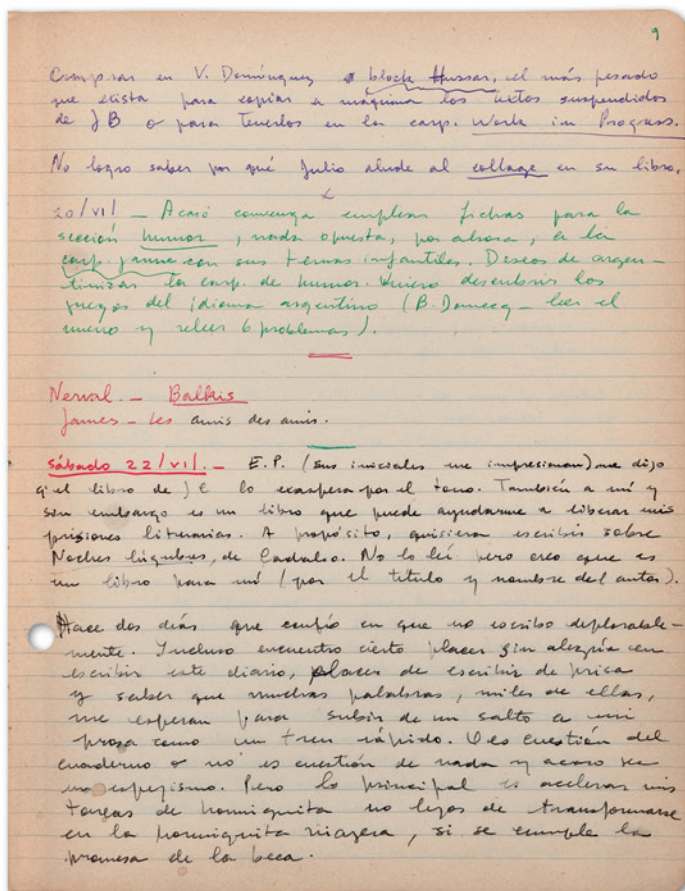 9
Comprar en V. Domínguez o block Hussar, el más pesado
que exista para copiar a máquina los textos suspendidos
de JB o para tenerlos en la carp. Work in Progress.
No logro saber por qué Julio alude al collage en su libro.
20/VI/ — Acaso convenga emplear fichas para la
sección humor, nada opuesta, por ahora, a la
carp. jaune con sus temas infantiles. Deseos de argen-
tinizar la carp. de humor. Quiero descubrir los
juegos del idioma argentino (B. Domecq — leer el
nuevo y releer 6 problemas).
Nerval — Balkis
James — Les amis des amis.
Sábado 22/VI/. — E.P. (sus iniciales me impresionan) me dijo
q' el libro de JC lo exaspera por el tono. También a mí y
sin embargo es un libro que puede ayudarme a liberar mis
prisiones literarias. A propósito, quisiera escribir sobre
Noches lúgubres, de Cadalso. No lo leí pero creo que es
un libro para mí (por el título y nombre del autor).
Hace dos días que confío en que no escribo deplorable-
mente. Incluso encuentro cierto placer sin alegría en
escribir este diario, placer de escribir de prisa
y saber que muchas palabras, miles de ellas,
me esperan para subir de un salto a mi
prosa como un tren rápido. O es cuestión del
cuaderno o no es cuestión de nada y acaso sea
un espejismo. Pero lo principal es acelerar mis
tareas de hormiguita no lejos de transformarse
en la hormiguita viajera, si se cumple la
promesa de la beca.